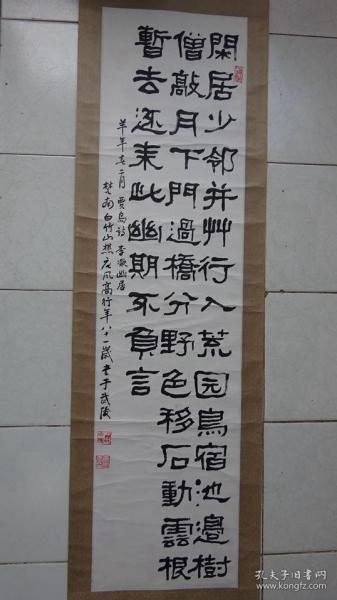 閑居少邻并艸行入荒园鳥宿池邉樹
僧敲月下門過橋分野色移石動雲根
暫去还来此幽期不負言
羊年春二月 賈島詩 李凝幽居
楚南白竹山 行年八十一歲 書于武陵
孔夫子旧书网